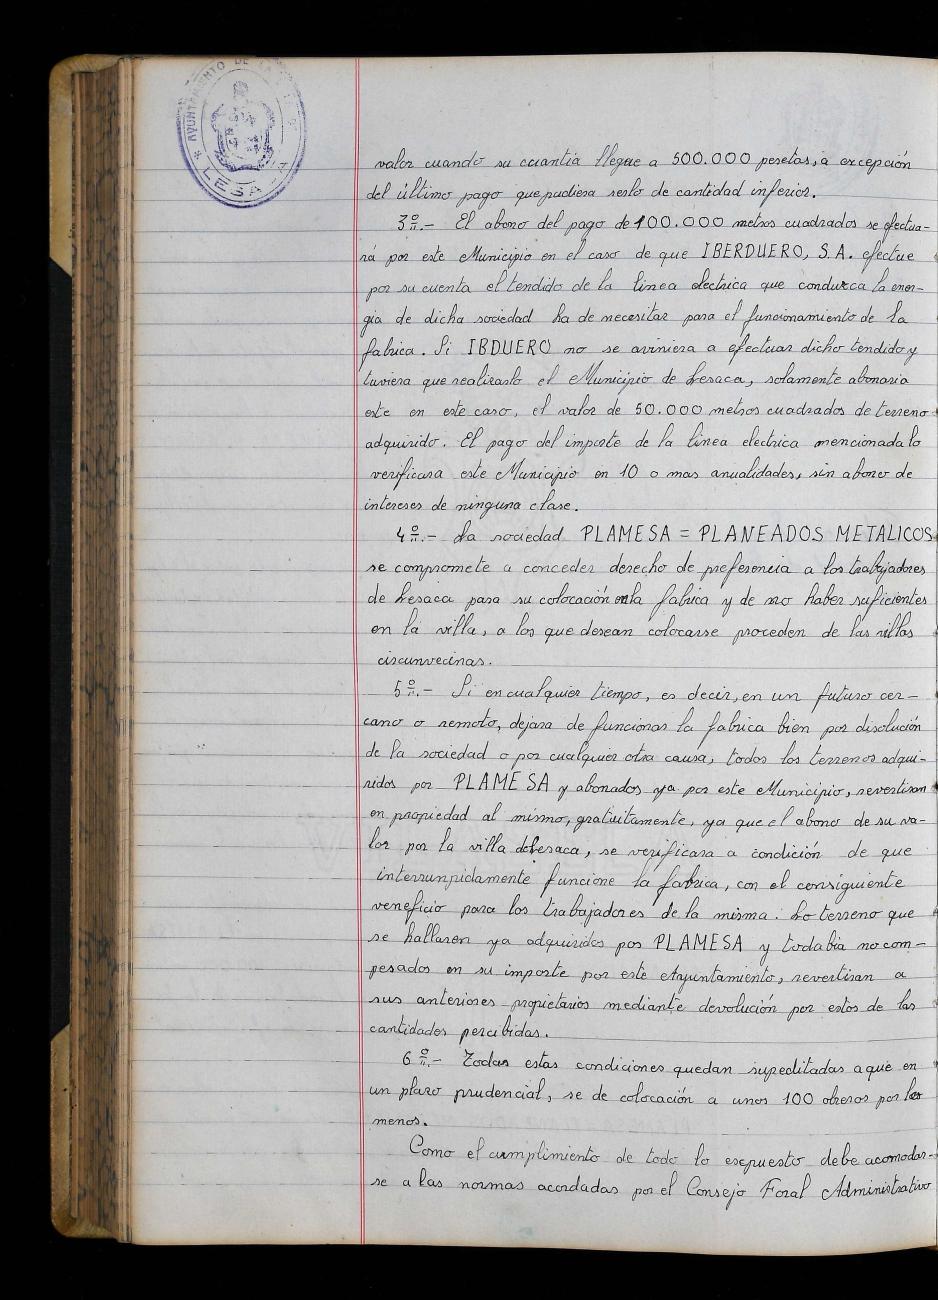 AYUNTAMIENTO DE LA
* LESACA
valor cuando su cuantia llegue a 500.000 pesetas, a excepción
del último pago que pudiera serlo de cantidad inferior.
3º.- El abono del pago de 100.000 metros cuadrados se efectua-
rá por este Municipio en el caso de que IBERDUERO, S.A. efectue
por su cuenta el tendido de la linea electrica que conduzca la ener-
gia de dicha sociedad ha de necesitar para el funcionamiento de la
fabrica. Si IBDUERO no se aviniera a efectuar dicho tendido y
tuviera que realizarlo el Municipio de Lesaca, solamente abonaria
este en este caso, el valor de 50.000 metros cuadrados de terreno
adquirido. El pago del importe de la linea electrica mencionada lo
verificara este Municipio en 10 o mas anualidades, sin abono de
intereses de ninguna clase.
4º.- La sociedad PLAMESA = PLANEADOS METALICOS
se compromete a conceder derecho de preferencia a los trabajadores
de Lesaca para su colocación en la fabrica y de no haber suficientes
en la villa, a los que desean colocarse proceden de las villas
circunvecinas.
5º.- Si en cualquier tiempo, es decir, en un futuro cer-
cano o remoto, dejara de funcionar la fabrica bien por disolución
de la sociedad o por cualquier otra causa, todos los terrenos adqui-
ridos por PLAMESA y abonados ya por este Municipio, revertiran
en propiedad al mismo, gratuitamente, ya que el abono de su va-
lor por la villa de Lesaca, se verificara a condición de que
interrunpidamente funcione la fabrica, con el consiguiente
veneficio para los trabajadores de la misma. Lo terreno que
se hallaren ya adquiridos por PLAMESA y todabia no com-
pesados en su importe por este Ayuntamiento, revertiran a
sus anteriores propietarios mediante devolución por estos de las
cantidades percibidas.
6º.- Todas estas condiciones quedan supeditadas a que en
un plazo prudencial, se de colocación a unos 100 obreros por lo
menos.
Como el cumplimiento de todo lo expuesto debe acomodar-
se a las normas acordadas por el Consejo Foral Administrativo